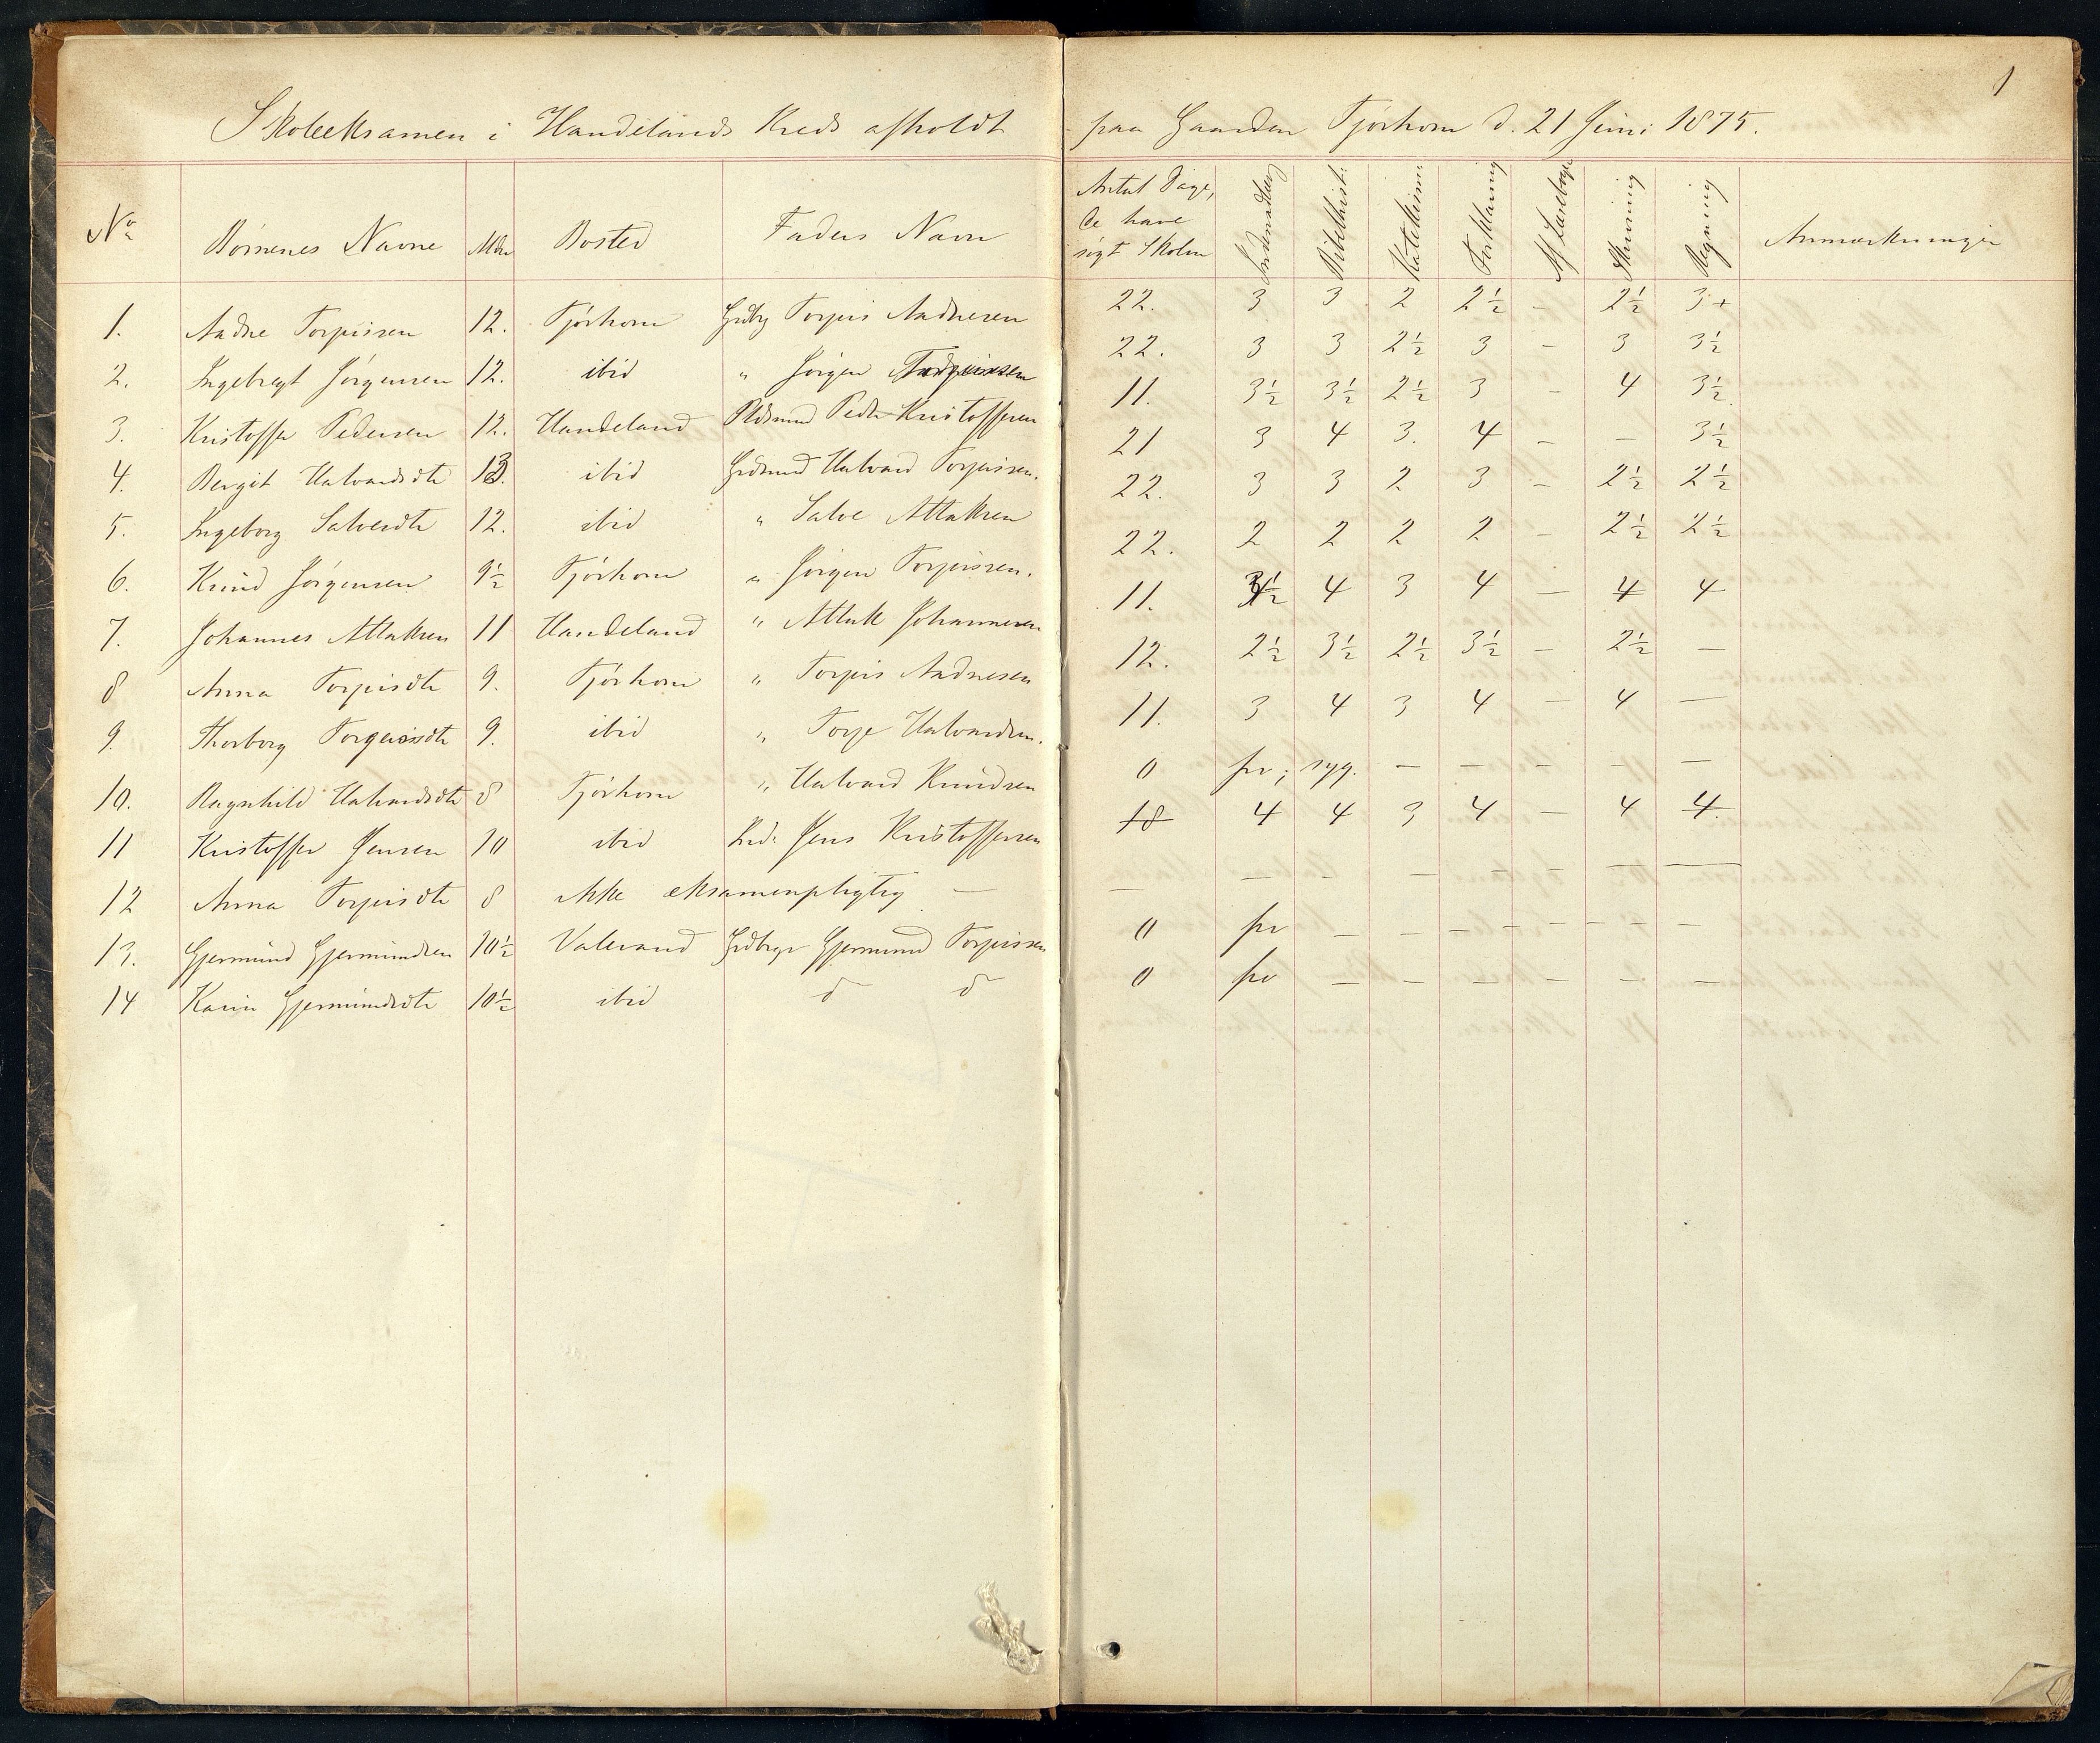 1
Skoleeksamen i Handelands Kreds afholdt paa Gaarden Tjørhom d. 21 Juni 1875.
No Børnenes Navne Alder Bosted Faders Navn Antal Dage, de have søgt Skolen Indenadlæsn Bibelhist. Katekisme Forklaring Af Læsebogen Skrivning Regning Anmærkninger
1. Andre Torgiissen 12. Tjørhom Grdbrg Torgiis Andresen 22. 3 3 2 2½ - 2½ 3+
2. Ingebregt Jørgensen 12. ibid " Jørgen 22. 3 3 2½ 3 - 3 3½
3. Kristoffer Pedersen 12. Handeland Pldsmnd Peder Kristoffersen 11. 3½ 3½ 2½ 3 - 4 3½
4. Bergit Halvardsdtr 13. ibid Grdmnd Halvard Torgiissen. 21 3 4 3. 4 - - 3½
5. Ingeborg Salvesdtr 12. ibid " Salve Attaksen 22. 3 3 2 3 - 2½ 2½
6. Knud Jørgensen 9½ Tjørhom " Jørgen Torgiissen. 22. 2 2 2 2 - 2½ 2½
7. Johannes Attaksen 11 Handeland " Attak Johannesen 11. 3½ 4 3 4 - 4 4
8 Anna Torgiisdtr 9. Tjørhom " Torgiis Andresen 12. 2½ 3½ 2½ 3½ - 2½ -
9. Thorborg Torgeisdtr 9. ibid " Torje Halvardsen. 11. 3 4 3 4 - 4 -
10. Ragnhild Halvardsdtr 8 Tjørhom " Halvard Knudsen 0 frv; syg. - - - - -
11 Kristoffer Jensen 10 ibid Jens Kristoffersen 18 4 4 3 4 - 4 4
12 Anna Torgiisdtr 8 ikke eksamenspligtig - - - - - - - - -
13. Gjermund Gjermundsen 10½ Valevand Grdbrgr Gjermund Torgiissen 0 frv - - - - - -
14 Karin Gjermundsdtr 10½ ibid d d 0 frv - - - - - -